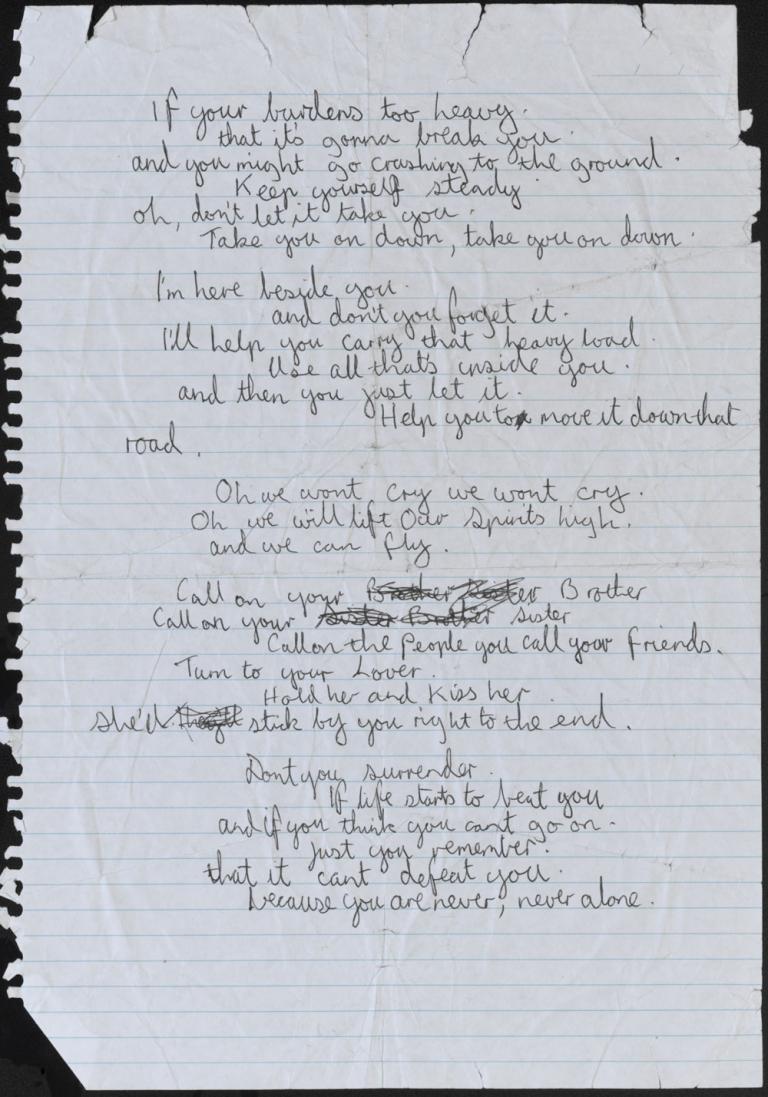 If your burdens too heavy.
that it's gonna break you.
and you might go crashing to the ground.
Keep yourself steady
oh, don't let it take you.
Take you on down, take you on down.
I'm here beside you.
and don't you forget it.
I'll help you carry that heavy load.
Use all that's inside you.
and then you just let it.
Help you to move it down that
road.
Oh we wont cry we wont cry.
Oh we will lift Our Spirits high.
and we can fly.
Call on your Brother
Call on your sister
Call on the People you call your friends.
Turn to your Lover.
Hold her and Kiss her
she'd stick by you right to the end.
Dont you surrender.
If life starts to beat you
and if you think you cant go on.
just you remember.
that it cant defeat you.
because you are never, never alone.